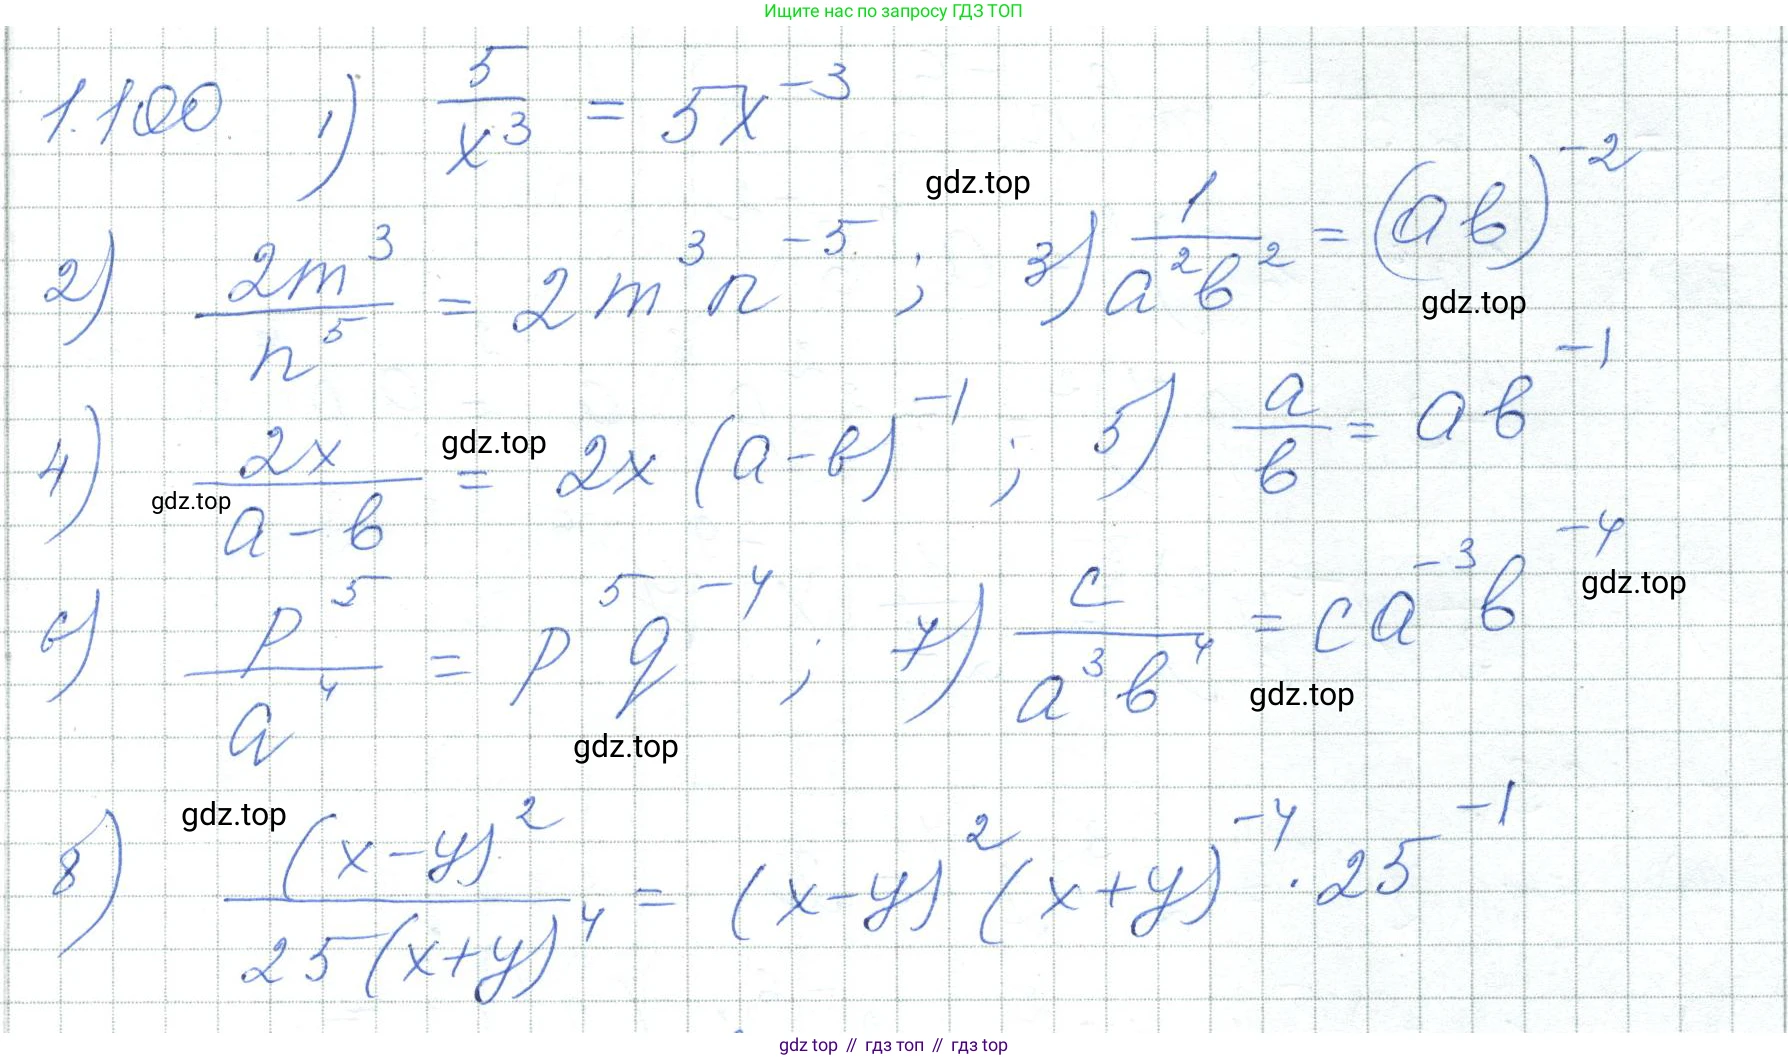 Ищите нас по запросу ГДЗ ТОП
1.100. 1) 5/x³ = 5x⁻³
gdz.top
2) 2m³/n⁵ = 2m³n⁻⁵ ; 3) 1/a²b² = (ab)⁻²
gdz.top
4) 2x/(a-b) = 2x(a-b)⁻¹ ; 5) a/b = ab⁻¹
gdz.top
gdz.top
6) p⁵/a⁴ = p⁵q⁻⁴ ; 7) c/a³b⁴ = ca⁻³b⁻⁴
gdz.top
gdz.top
gdz.top
gdz.top
8) (x-y)²/25(x+y)⁴ = (x-y)²(x+y)⁻⁴ · 25⁻¹
gdz top // гдз топ // гдз top